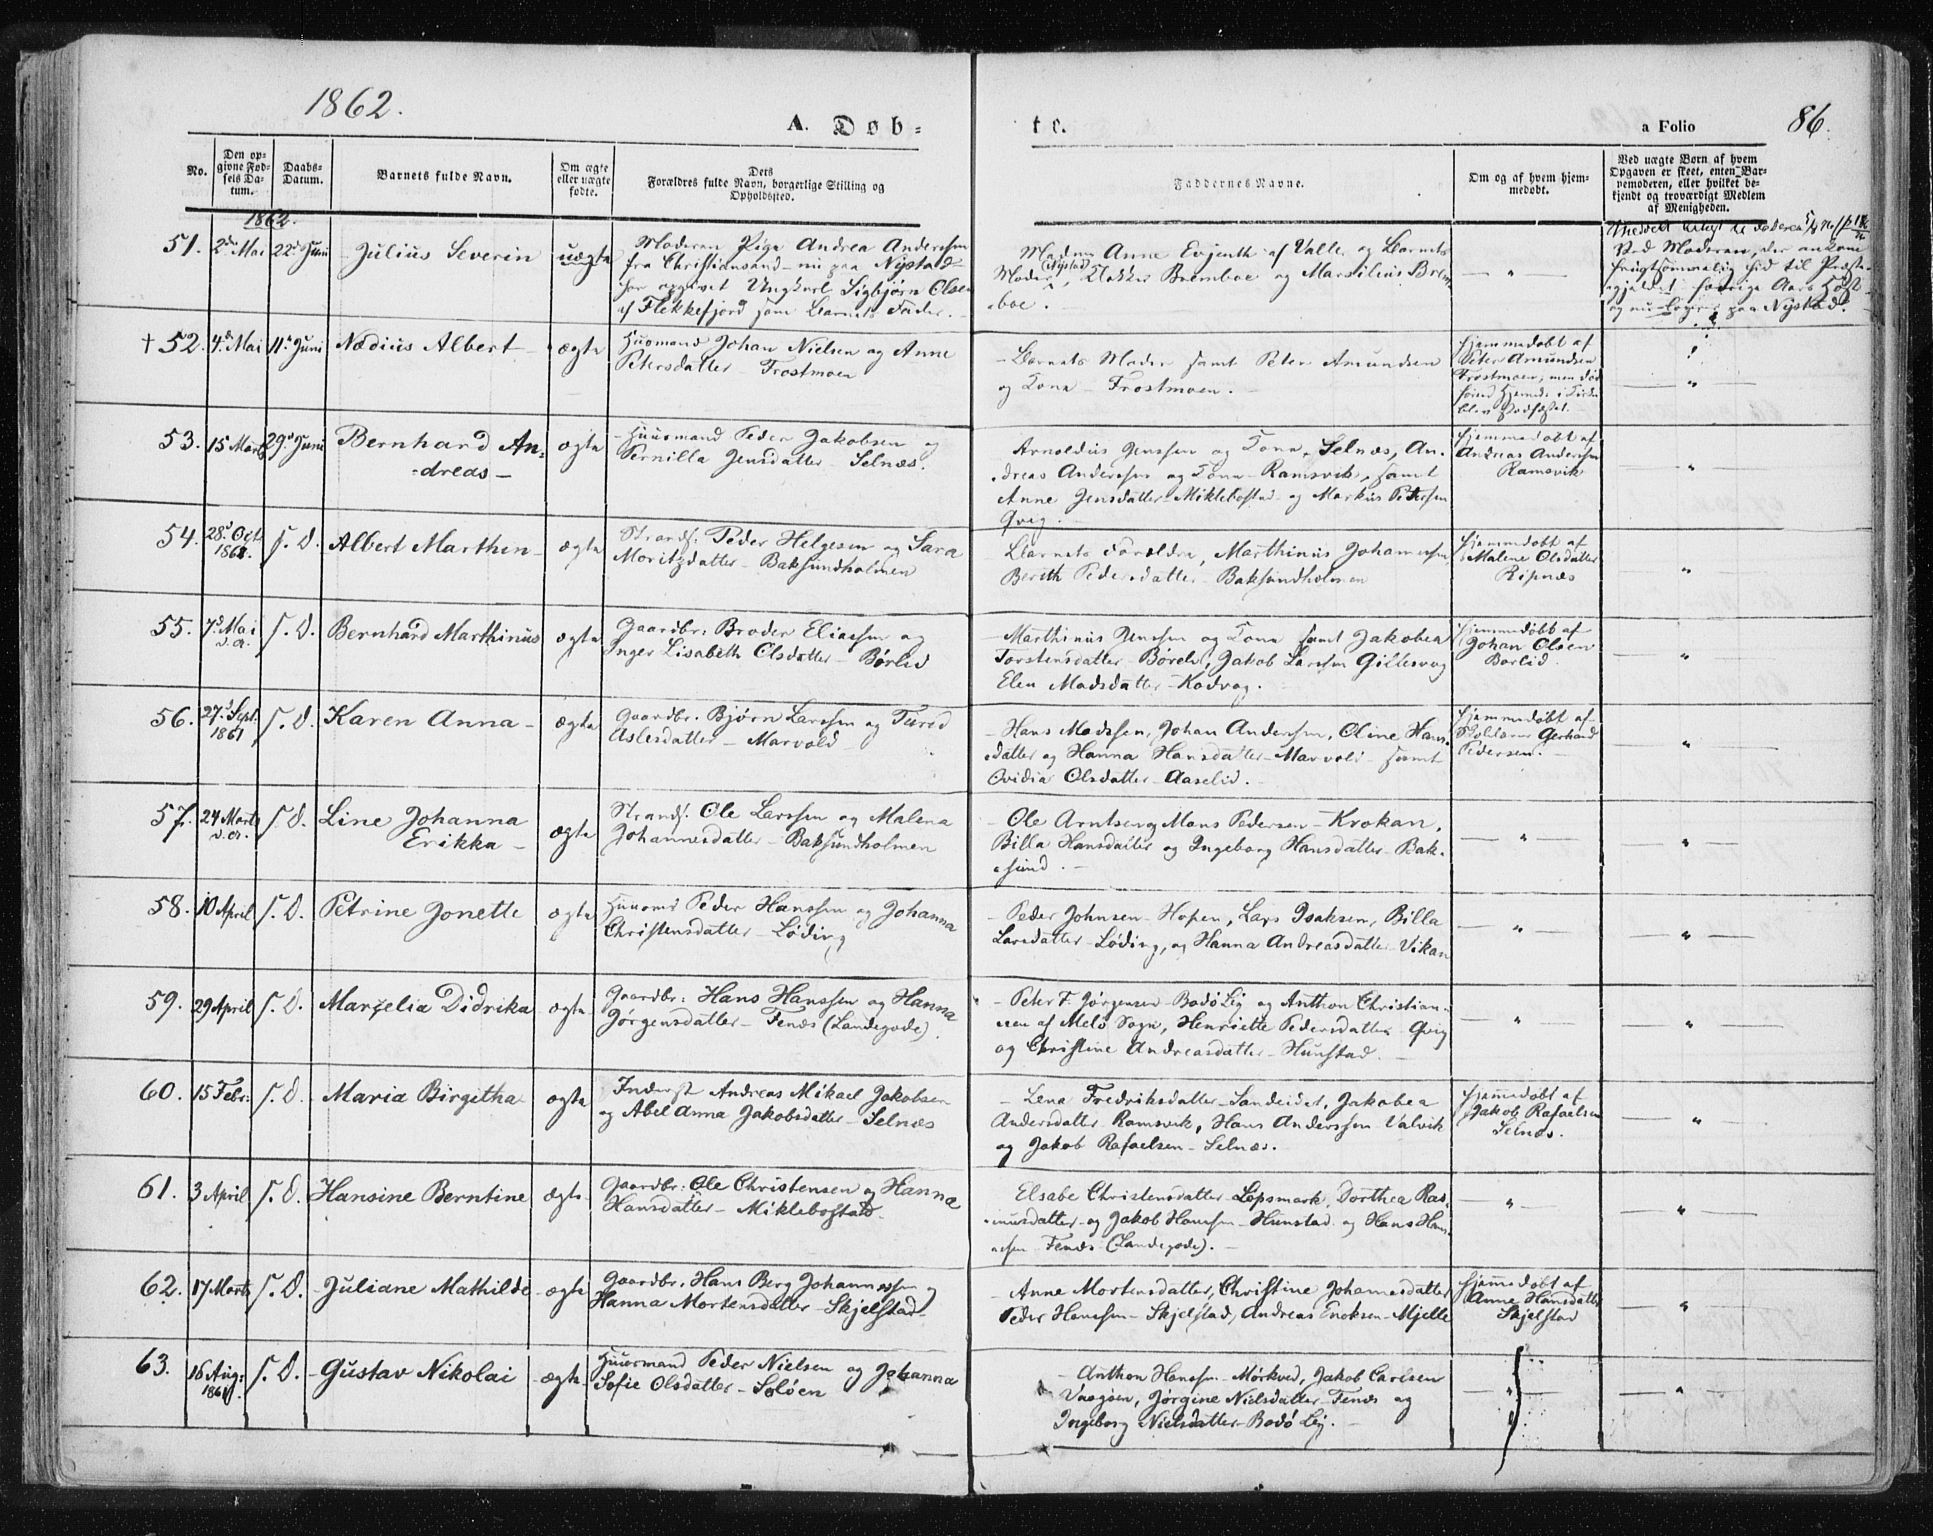 1862.
A. Døb=
te.
a Folio
86.
No.
Den op-
givne Fød-
sels Da-
tum.
Daabs-
Datum.
Barnets fulde Navn.
Om ægte
eller uægte
fødte.
Dets
Forældres fulde Navn, borgerlige Stilling og
Opholdssted.
Faddernes Navne.
Om og af hvem hjem-
medøbt.
Ved uægte Børn af hvem
Opgaven er skeet, enten Bar-
nemoderen, eller hvilket be-
kjendt og troværdigt Medlem
af Menigheden.
1862.
51. 2d Mai 22d Juni Julius Severin uægte
Moderen Pige Andrea Anderssen
fra Christiansand - nu paa Nystad -
har opgivet Ungkarl Sigbjørn Olsen
af Flekkefjord som Barnets Fader.
Madm Anne Evjenth af Valle og Barnets
Moder (Nystad), Klokker Bremboe og Marsilius Brem
boe.
— " —
Ved Moderen, der ankom
frugtsommelig hid til Præste-
gjeldet forrige Aars Høst
og nu Logerer paa Nystad.
† 52. 4d Mai 11d Juni Nædius Albert - ægte
Huusmand Johan Nielsen og Anne
Petersdatter - Frostmoen
- Barnets Moder samt Peter Amundsen
og Kona - Frostmoen. -
Hjemmedøbt af
Peter Amundsen
Frostmoen, men død
førend Hjemmed: i Kirken
blev stadfæstet.
— " —
53. 15 Marts 29d Juni Bernhard An=
dreas - ægte
Huusmand Peder Jakobsen og
Pernilla Jensdatter - Selnæs.
Arnoldus Jenssen og Kona, Selnæs, An-
dreas Anderssen og Kona - Ramsvik, samt
Anne Jensdatter - Miklebostad og Markus Pedersen
Qvig.
Hjemmedøbt af
Andreas Anderssen
Ramsvik
— " —
54. 28d Oct.
1861. s. D. Albert Marthin - ægte
Strands. Peder Helgesen og Sara
Moritzdatter - Baksundholmen
- Barnets Forældre, Marthinus Johannessen,
Berith Pedersdatter - Baksundholmen
Hjemmedøbt af
Malene Olsdatter
Ripnæs
— " —
55. 7d Mai
d. A. s. D. Bernhard Marthinus ægte
Gaardbr: Broder Eliassen og
Inger Lisabeth Olsdatter - Børlid
- Marthinus Jenssen og Kona samt Jakobea
Torstensdatter - Børeli, Jakob Larssen Gillesvog
Elen Madsdatter - Kodvog.
Hjemmedøbt af
Johan Olsen
Børlid.
— " —
56. 27d Sept.
1861 s. D. Karen Anna - ægte
Gaardbr. Bjørn Larssen og Turid
Aslesdatter - Marvold
- Hans Madssen, Johan Anderssen, Oline Hans-
datter og Hanna Hansdatter - Marvold - samt
Ovidia Olsdatter - Aaselid.
Hjemmedøbt af
Skolelærer Gerhard
Pedersen.
— " —
57. 24 Marts
d. A. s. D. Line Johanna
Erikka - ægte
Strands. Ole Larssen og Malena
Johannesdatter - Baksundholmen
- Ole Arntsen og Mons Pedersen - Krokan,
Billa Hansdatter og Ingeborg Hansdatter - Bak-
sund. -
— " —
— " —
58. 10 April s. D. Petrine Jonette ægte
Huusmd Peder Hanssen og Johanna
Christensdatter - Løding
- Peder Johnsen - Hopen, Lars Isaksen, Billa
Larsdatter - Løding, og Hanna Andreasdatter - Vikan
— " —
— " —
59. 29 April s. D. Marselia Didrika ægte
Gaardbr: Hans Hanssen og Hanna
Jørgensdatter - Fenæs (Landegode).
- Peter F. Jørgensen - Bodö Leg og Anthon Christian-
sen af Melö Sogn, Henriette Pedersdatter - Qvig
og Christine Andreasdatter - Hunstad.
— " —
— " —
60. 15 Febr: s. D. Maria Birgitha ægte
Inderst Andreas Mikael Jakobsen
og Abel Anna Jakobsdatter - Selnæs
- Lena Fredriksdatter - Sandeidet, Jakobea
Andersdatter Ramsvik, Hans Anderssen Valvik
og Jakob Rafaelsen - Selnæs.
Hjemmedøbt af
Jakob Rafaelsen
Selnæs.
— " —
61. 3 April s. D. Hansine Berntine ægte
Gaardbr: Ole Christensen og Hanna
Hansdatter - Miklebostad
Elsabe Christensdatter - Løpsmark, Dorthea Ras-
musdatter og Jakob Hanssen - Hunstad og Hans Han-
ssen Fenæs (Landegode). -
— " —
— " —
62. 17 Marts s. D. Juliane Mathilde ægte
Gaardbr. Hans Berg Johannessen og
Hanna Mortensdatter - Skjelstad
- Anne Mortensdatter, Christine Johannesdatter
Peder Hanssen - Skjelstad, Andreas Enoksen - Mjelle
Hjemmedøbt af
Anne Hansdatter
Skjelstad
— " —
63. 16 Aug:
1861 s. D. Gustav Nikolai ægte
Huusmand Peder Nielsen og Johanna
Sofie Olsdatter - Soløen
- Anthon Hanssen - Mørkved, Jakob Carlsen
Vaagøen, Jørgine Nielsdatter - Fenæs og
Ingeborg Nielsdatter - Bodö Leg. -
— " —
— " —